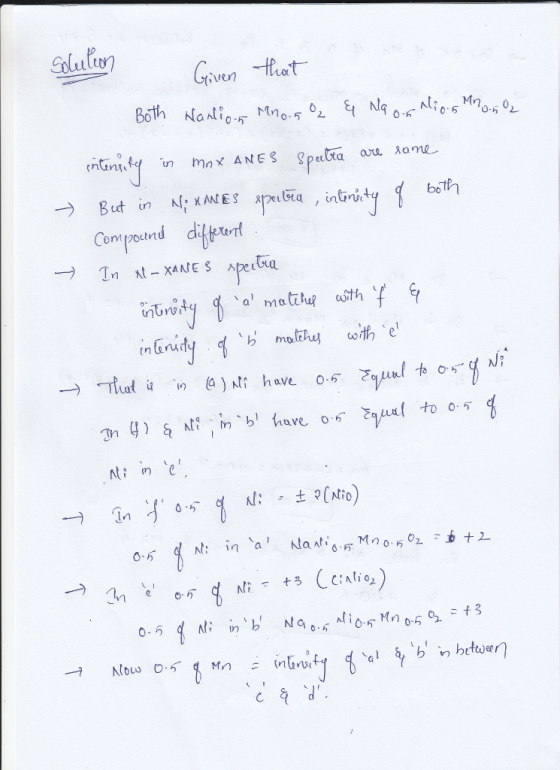 Solution Given that
Both NaNi0.5 Mn0.5 O2 & Na0.5 Ni0.5 Mn0.5 O2
intensity in mnx ANES spectra are same
→ But in Ni XANES spectra, intensity of both
Compound different.
→ In N-XANES spectra
intensity of 'a' matches with 'f' &
intensity of 'b' matches with 'e'
→ That is in (a) Ni have 0.5 Equal to 0.5 of Ni
In (f) & Ni, in 'b' have 0.5 Equal to 0.5 of
Ni in 'e'.
→ In 'f' 0.5 of Ni = ± 2 (Nio)
0.5 of Ni in 'a' NaNi0.5 Mn0.5 O2 = +2
→ In 'e' 0.5 of Ni = +3 (LiNiO2)
0.5 of Ni in 'b' Na0.5 Ni0.5 Mn0.5 O2 = +3
→ Now 0.5 of Mn = intensity of 'a' & 'b' in between
'c' & 'd'.